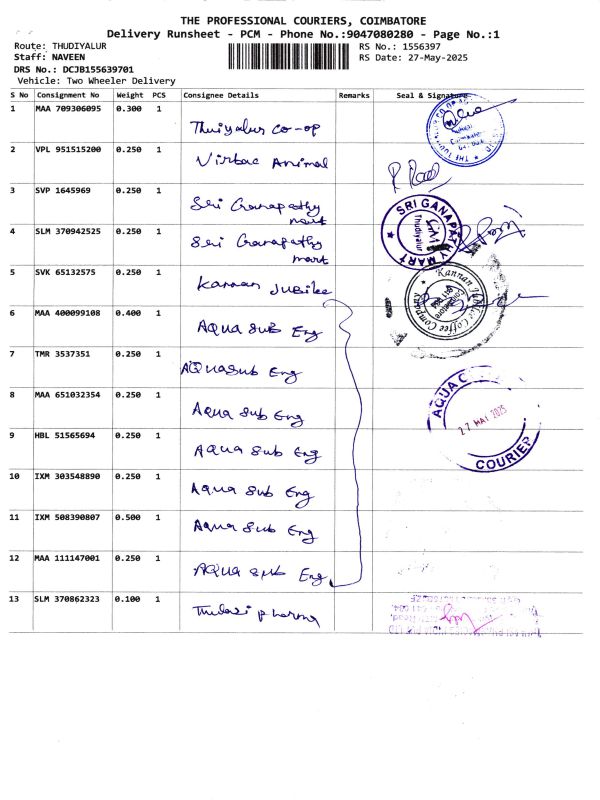 THE PROFESSIONAL COURIERS, COIMBATORE
Delivery Runsheet - PCM - Phone No.:9047080280 - Page No.:1
Route: THUDIYALUR
RS No.: 1556397
Staff: NAVEEN
RS Date: 27-May-2025
DRS No.: DCJB155639701
Vehicle: Two Wheeler Delivery
S No Consignment No Weight PCS Consignee Details Remarks Seal & Signature
1 MAA 709306095 0.300 1
Thuiyalur co-op
2 VPL 951515200 0.250 1 Virbac Animal
3 SVP 1645969 0.250 1 Sri Ganapathy
mart
SRI GANAPATHY MART
Thudiyalur
4 SLM 370942525 0.250 1 Sri Ganapathy
mart
5 SVK 65132575 0.250 1 Kannan Jubilee
Kannan Jubilee Coffee Company
6 MAA 400099108 0.400 1 AQUA Sub Eng
7 TMR 3537351 0.250 1 AQUA sub Eng
8 MAA 651032354 0.250 1 Aqua Sub Eng
AQUA
27 MAY 2025
COURIER
9 HBL 51565694 0.250 1 Aqua Sub Eng
10 IXM 303548890 0.250 1 Aqua Sub Eng
11 IXM 508390807 0.500 1 Aqua Sub Eng
12 MAA 111147001 0.250 1 AQUA Sub Eng
13 SLM 370862323 0.100 1